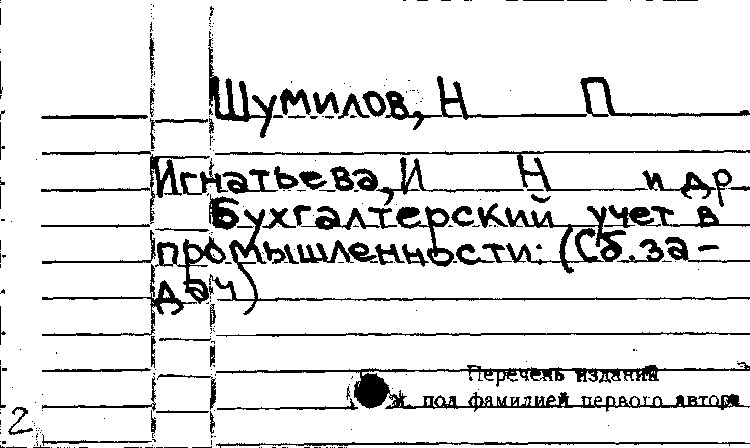 Шумилов, Н П
Игнатьева, И Н и др
Бухгалтерский учет в
промышленности: (Сб. за-
дач)
Перечень изданий
под фамилией первого автора
2